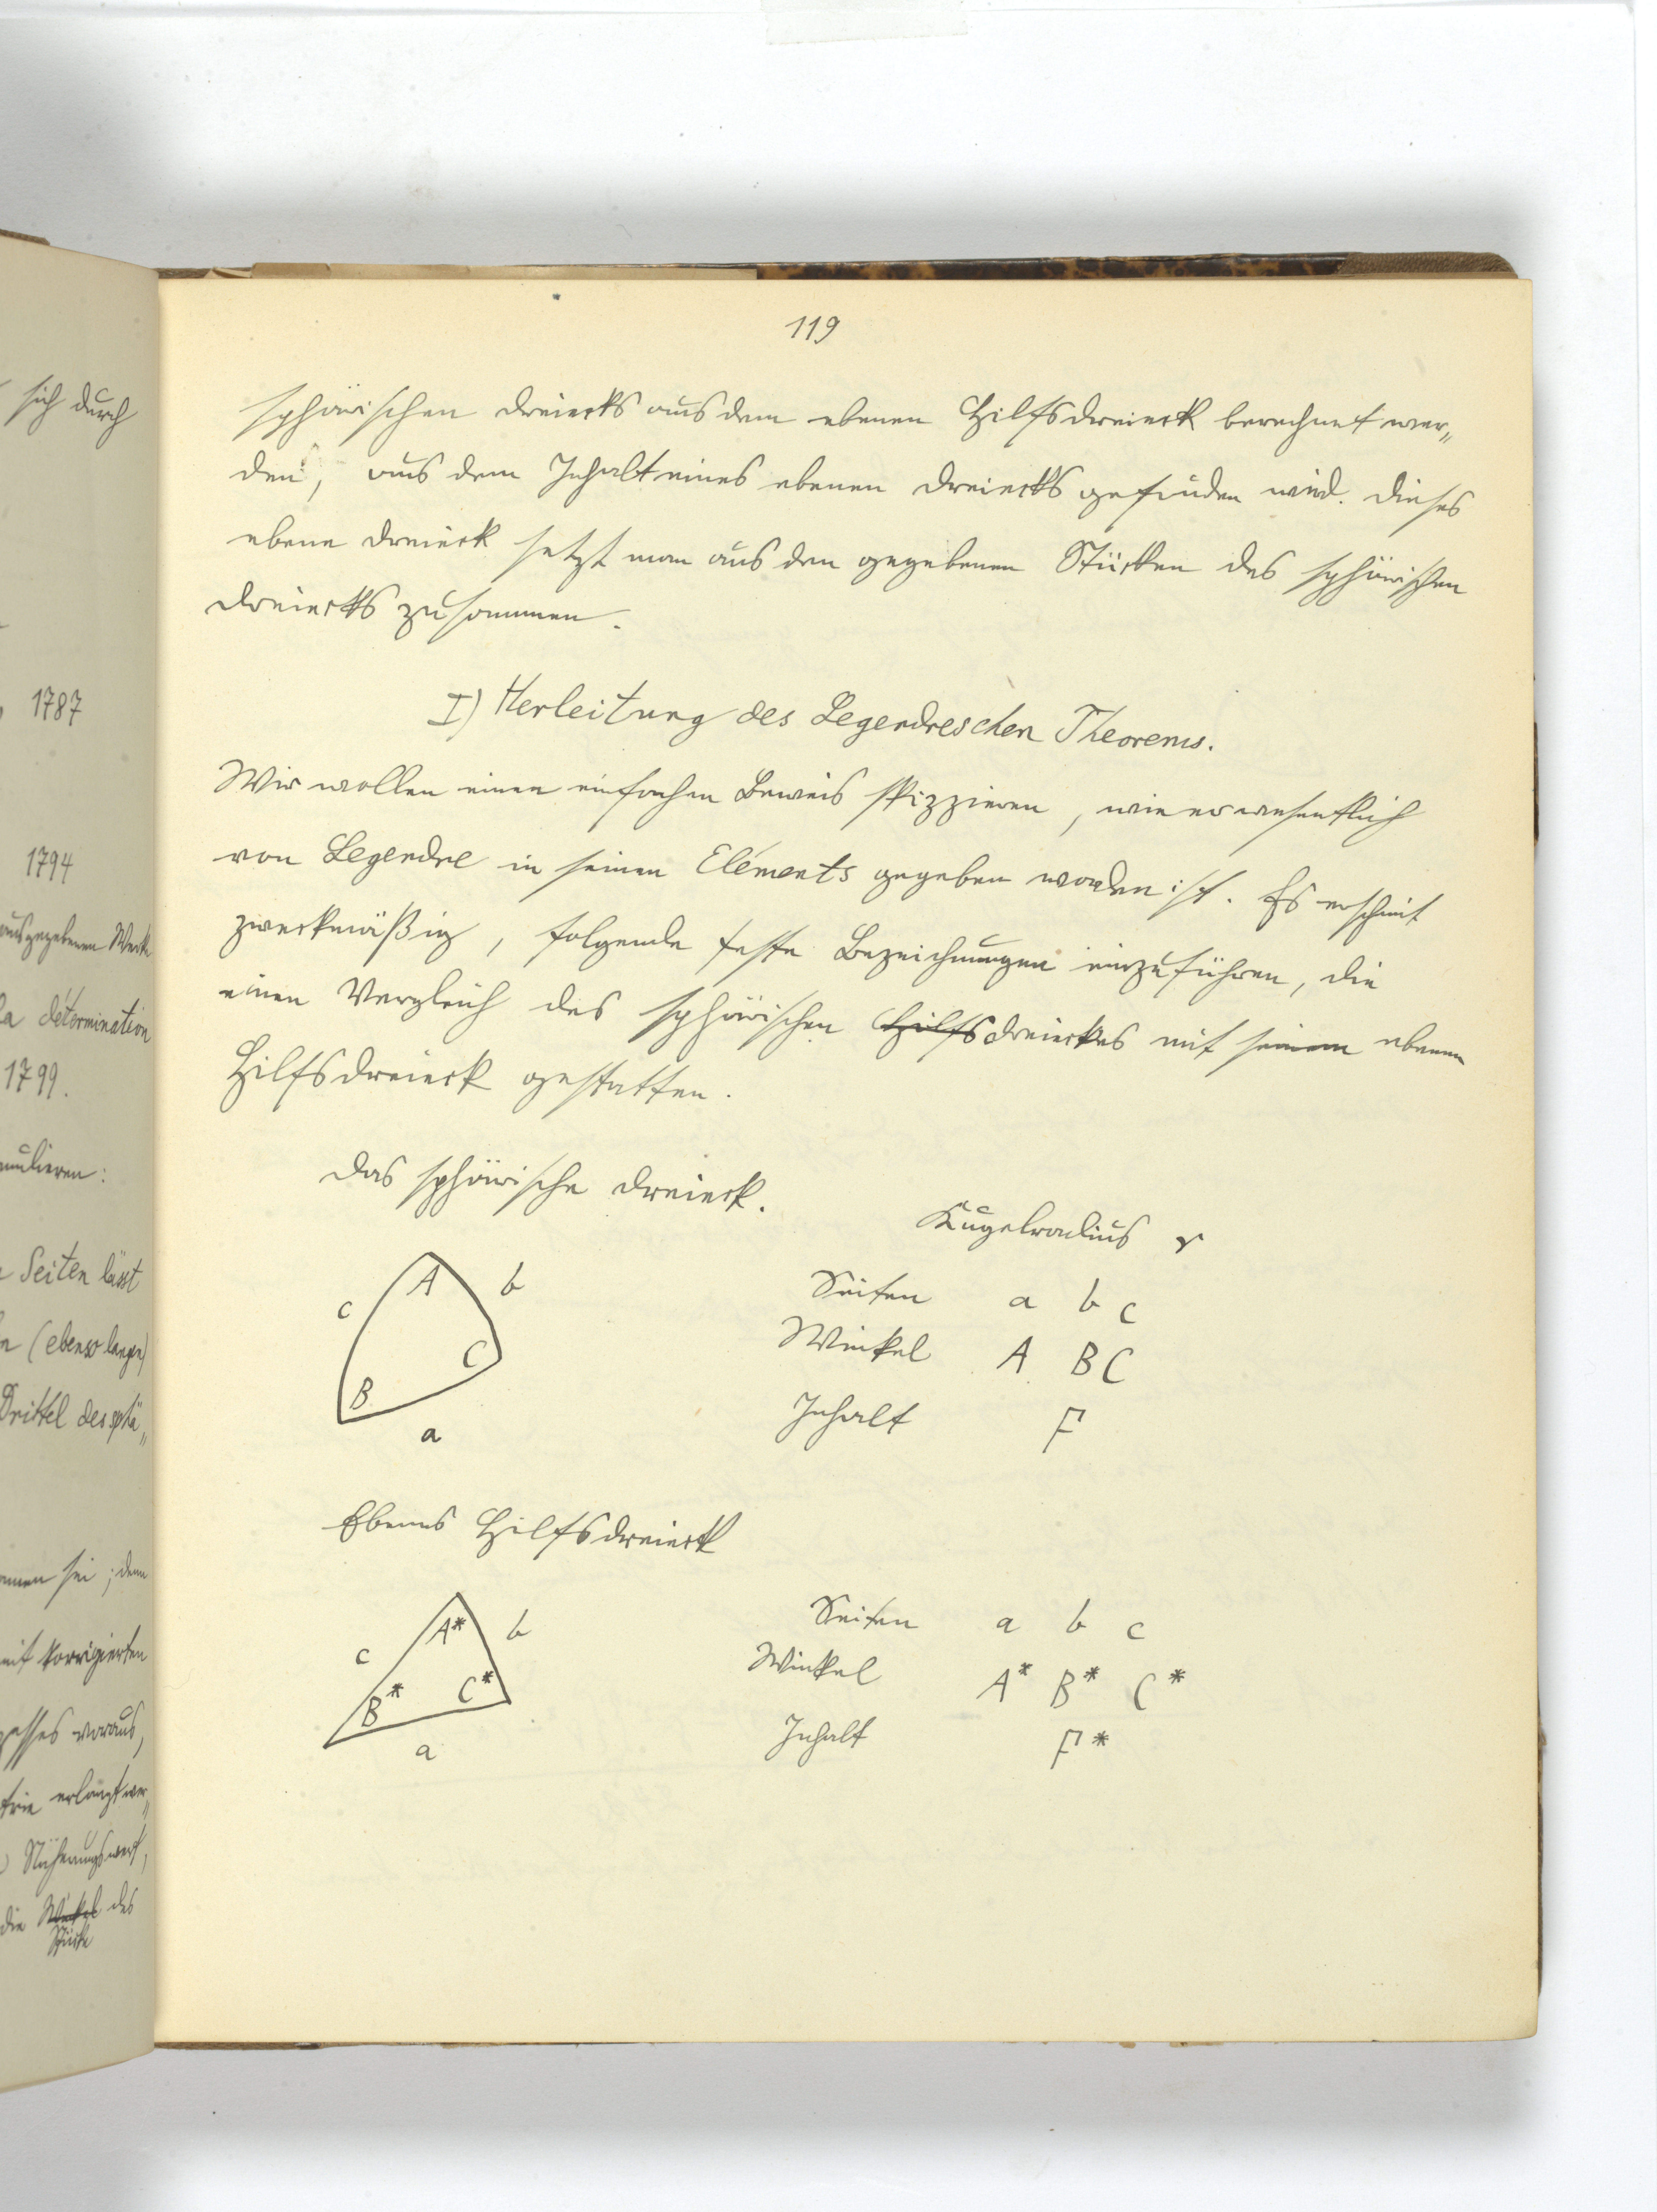 sich durch
1787
1794
ausgegebenen Werke
la détermination
1799.
mulieren:
Seiten lässt
(ebenso langen)
Drittel des sphä„
sei; denn
mit korrigierten
voraus,
erlangt wer„
Näherungswert,
die Winkel des
Stücke
119
sphärischen Dreiecks aus dem ebenen Hilfsdreieck berechnet wer„
den, aus dem Inhalt eines ebenen Dreiecks gefunden wird. Dieses
ebene Dreieck setzt man aus den gegebenen Stücken des sphärischen
Dreiecks zusammen.
I) Herleitung des Legendreschen Theorems.
Wir wollen einen einfachen Beweis skizzieren, wie er wesentlich
von Legendre in seinen Eléments gegeben worden ist. Es erscheint
zweckmäßig, folgende feste Bezeichnungen einzuführen, die
einen Vergleich des sphärischen Hilfsdreieckes mit seinem ebenen
Hilfsdreieck gestatten.
Das sphärische Dreieck.
Kugelradius r
A b
c
C
B
a
Seiten a b c
Winkel A B C
Inhalt F
Ebenes Hilfsdreieck
A* b
c
B* C*
a
Seiten a b c
Winkel A* B* C*
Inhalt F*